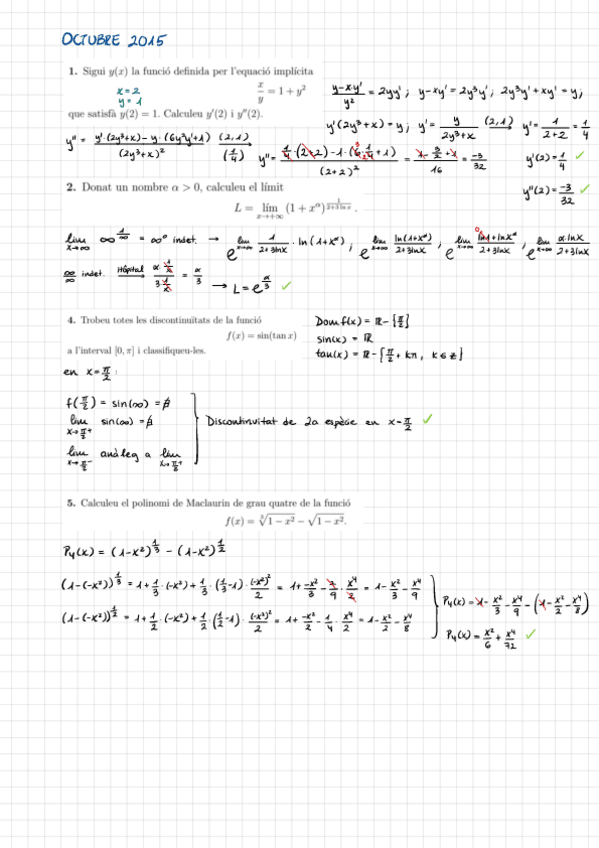 OCTUBRE 2015
1. Sigui y(x) la funció definida per l'equació implícita
x/y = 1 + y²
x=2
y=1
que satisfà y(2) = 1. Calculeu y'(2) i y''(2).
(y-xy')/y² = 2yy' ; y-xy' = 2y³y' ; 2y³y'+xy' = y ;
y'(2y³+x) = y ; y' = y/(2y³+x) (2,1)→ y' = 1/(2+2) = 1/4
y'' = (y'·(2y³+x) - y·(6y²y'+1))/(2y³+x)² (2,1)→ (1/4) y'' = (1/4·(2+2) - 1·(6·1/4+1))/(2+2)² = (1 - 3/2 + 1)/16 = -3/32
y'(2) = 1/4 ✓
y''(2) = -3/32 ✓
2. Donat un nombre α > 0, calculeu el límit
L = lím x→+∞ (1 + x^α)^(1/(2+3 ln x)) .
lim x→∞ ∞^(1/∞) = ∞⁰ indet. → e^(lim x→∞ 1/(2+3lnx) · ln(1+x^α)) ; e^(lim x→∞ ln(1+x^α)/(2+3lnx)) ; e^(lim x→∞ (ln1+lnx^α)/(2+3lnx)) ; e^(lim x→∞ α lnx/(2+3lnx))
∞/∞ indet. Hôpital→ (α 1/x)/(3·1/x) = α/3 → L = e^(α/3) ✓
4. Trobeu totes les discontinuïtats de la funció
f(x) = sin(tan x)
a l'interval [0, π] i classifiqueu-les.
Dom f(x) = ℝ - {π/2}
sin(x) = ℝ
tan(x) = ℝ - {π/2 + kπ, k ∈ ℤ}
en x = π/2 :
f(π/2) = sin(∞) = ∄
lim x→π/2⁺ sin(∞) = ∄
lim x→π/2⁻ anàleg a lim x→π/2⁺
Discontinuitat de 2a espècie en x = π/2 ✓
5. Calculeu el polinomi de Maclaurin de grau quatre de la funció
f(x) = ∛(1 - x²) - √(1 - x²).
P₄(x) = (1-x²)^(1/3) - (1-x²)^(1/2)
(1-(-x²))^(1/3) = 1 + 1/3·(-x²) + 1/3·(1/3-1)·(-x²)²/2 = 1 + -x²/3 - 2/9·x⁴/2 = 1 - x²/3 - x⁴/9
(1-(-x²))^(1/2) = 1 + 1/2·(-x²) + 1/2·(1/2-1)·(-x²)²/2 = 1 + -x²/2 - 1/4·x⁴/2 = 1 - x²/2 - x⁴/8
P₄(x) = 1 - x²/3 - x⁴/9 - (1 - x²/2 - x⁴/8)
P₄(x) = x²/6 + x⁴/72 ✓